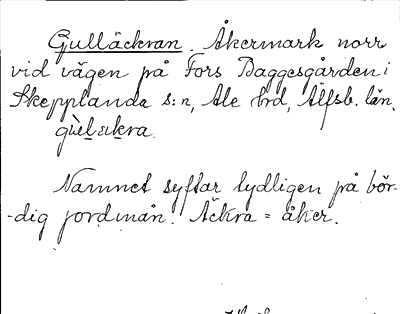 Gulläckran. Åkermark norr
vid vägen på Fors Baggesgården i
Skepplanda s:n, Ale hrd, Älfsb. län.
Namnet syftar tydligen på bör-
-dig jordmån. Äckra = åker.